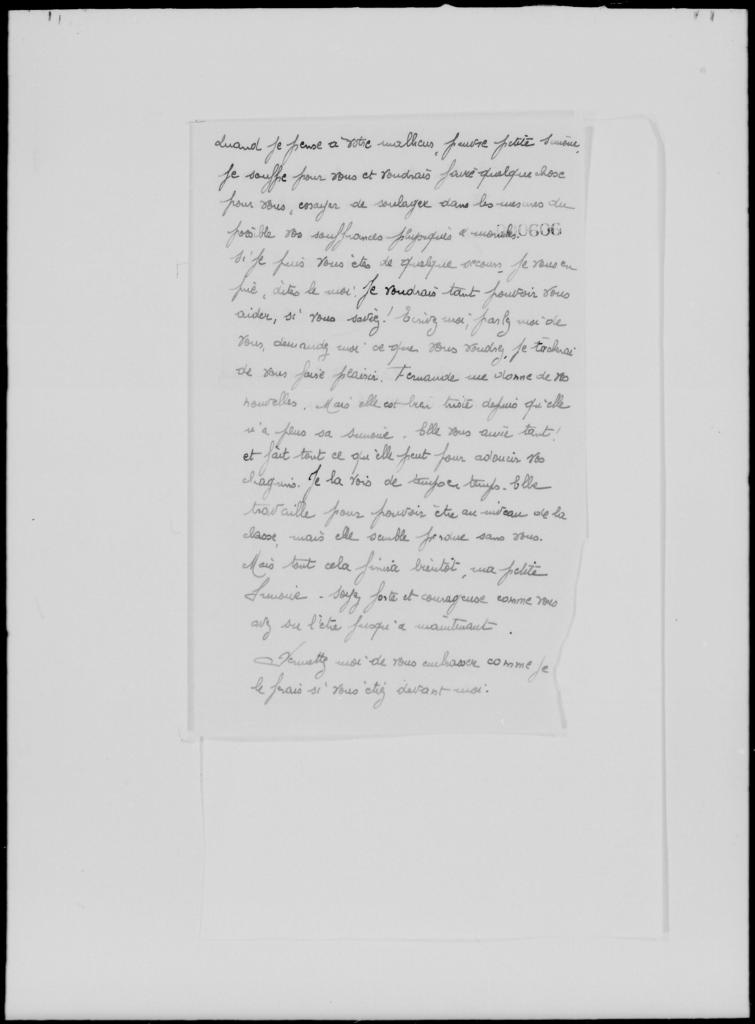 Quand je pense à votre malheur, pauvre petite Simone,
je souffre pour vous et voudrais faire quelque chose
pour vous, essayer de soulager dans les mesures du
possible vos souffrances physiques & morales.
Si je puis vous être de quelque secours, je vous en
prie, dites le moi. Je voudrais tant pouvoir vous
aider, si vous saviez! Ecrivez moi, parlez moi de
vous, demandez moi ce que vous voudrez, je tâcherai
de vous faire plaisir. Fernande me donne de vos
nouvelles. Mais elle est bien triste depuis qu'elle
n'a plus sa Simone. Elle vous aime tant!
et fait tout ce qu'elle peut pour adoucir vos
chagrins. Je la vois de temps en temps. Elle
travaille pour pouvoir être au niveau de la
classe, mais elle semble perdue sans vous.
Mais tout cela finira bientôt, ma petite
Simone. Soyez forte et courageuse comme vous
avez su l'être jusqu'à maintenant.
Permettez moi de vous embrasser comme je
le ferais si vous étiez devant moi.